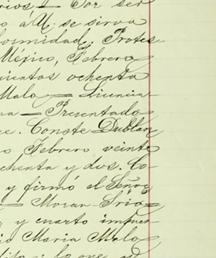 rios = Por ser
á U. se sirva
formidad, Protes
México, Febrero
cientos ochenta
Malo = Licencia
na = Presentado
ce. Conste Dublan
o Febrero veinte
chenta y dos. Co
y firmó el Señor
= Moran = Srio
y cuarto
María Malo